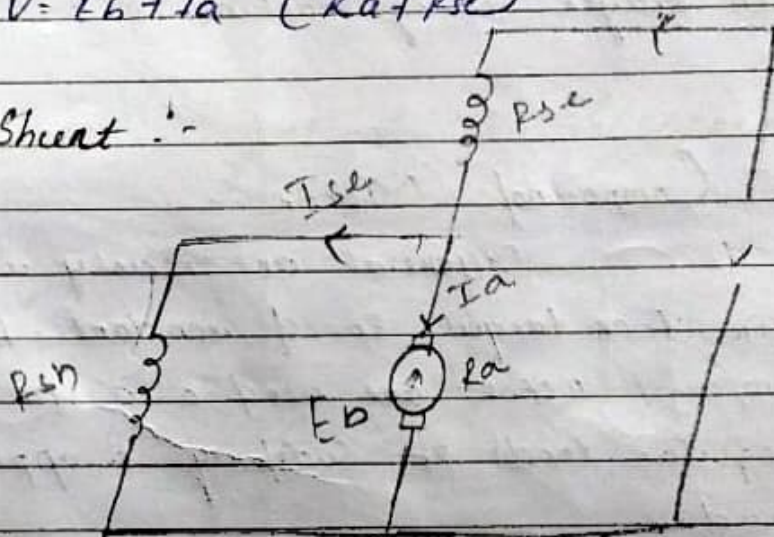 V = Eb + Ia (Ra + Rse)
Shunt :-
Rse
Ise
Ia
Rsh
Eb
Ra
V